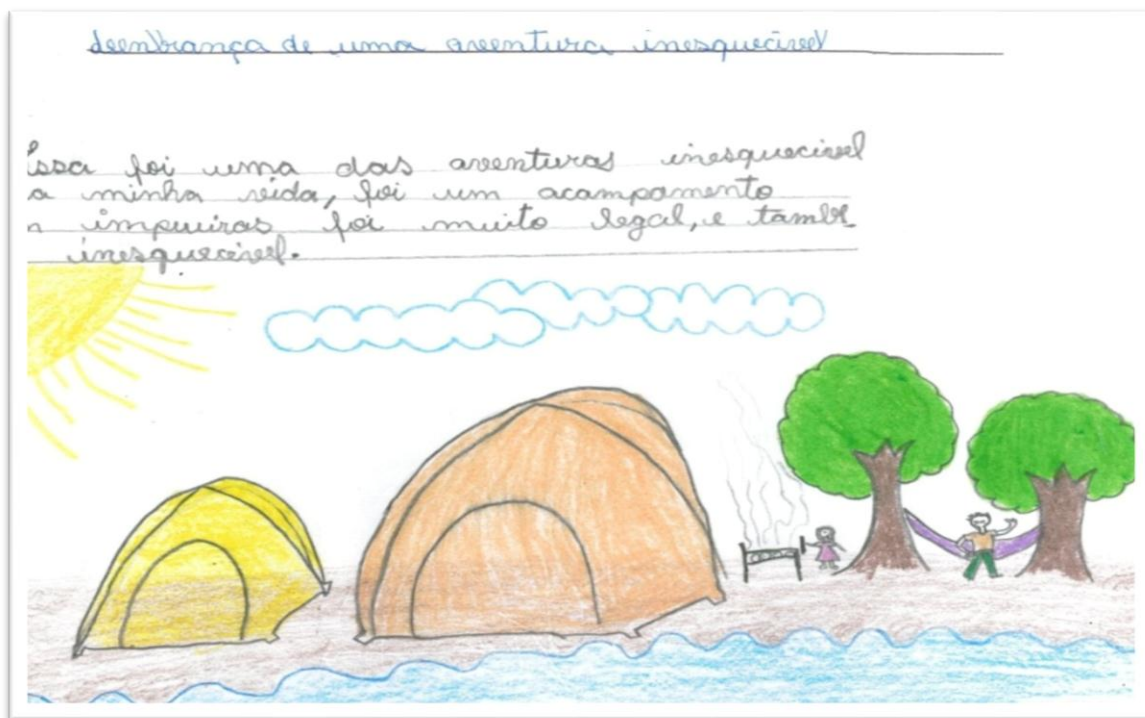 Lembrança de uma aventura inesquecível
Essa foi uma das aventuras inesquecivel
a minha vida, foi um acampamento
n impuiras foi muito legal, e tambe
inesquecivel.